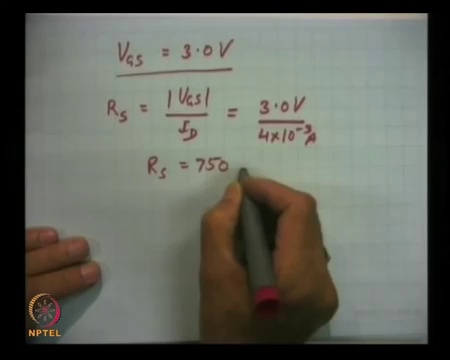 V_GS = 3.0 V
R_S = |V_GS| / I_D = 3.0 V / 4×10⁻³ A
R_S = 750
NPTEL